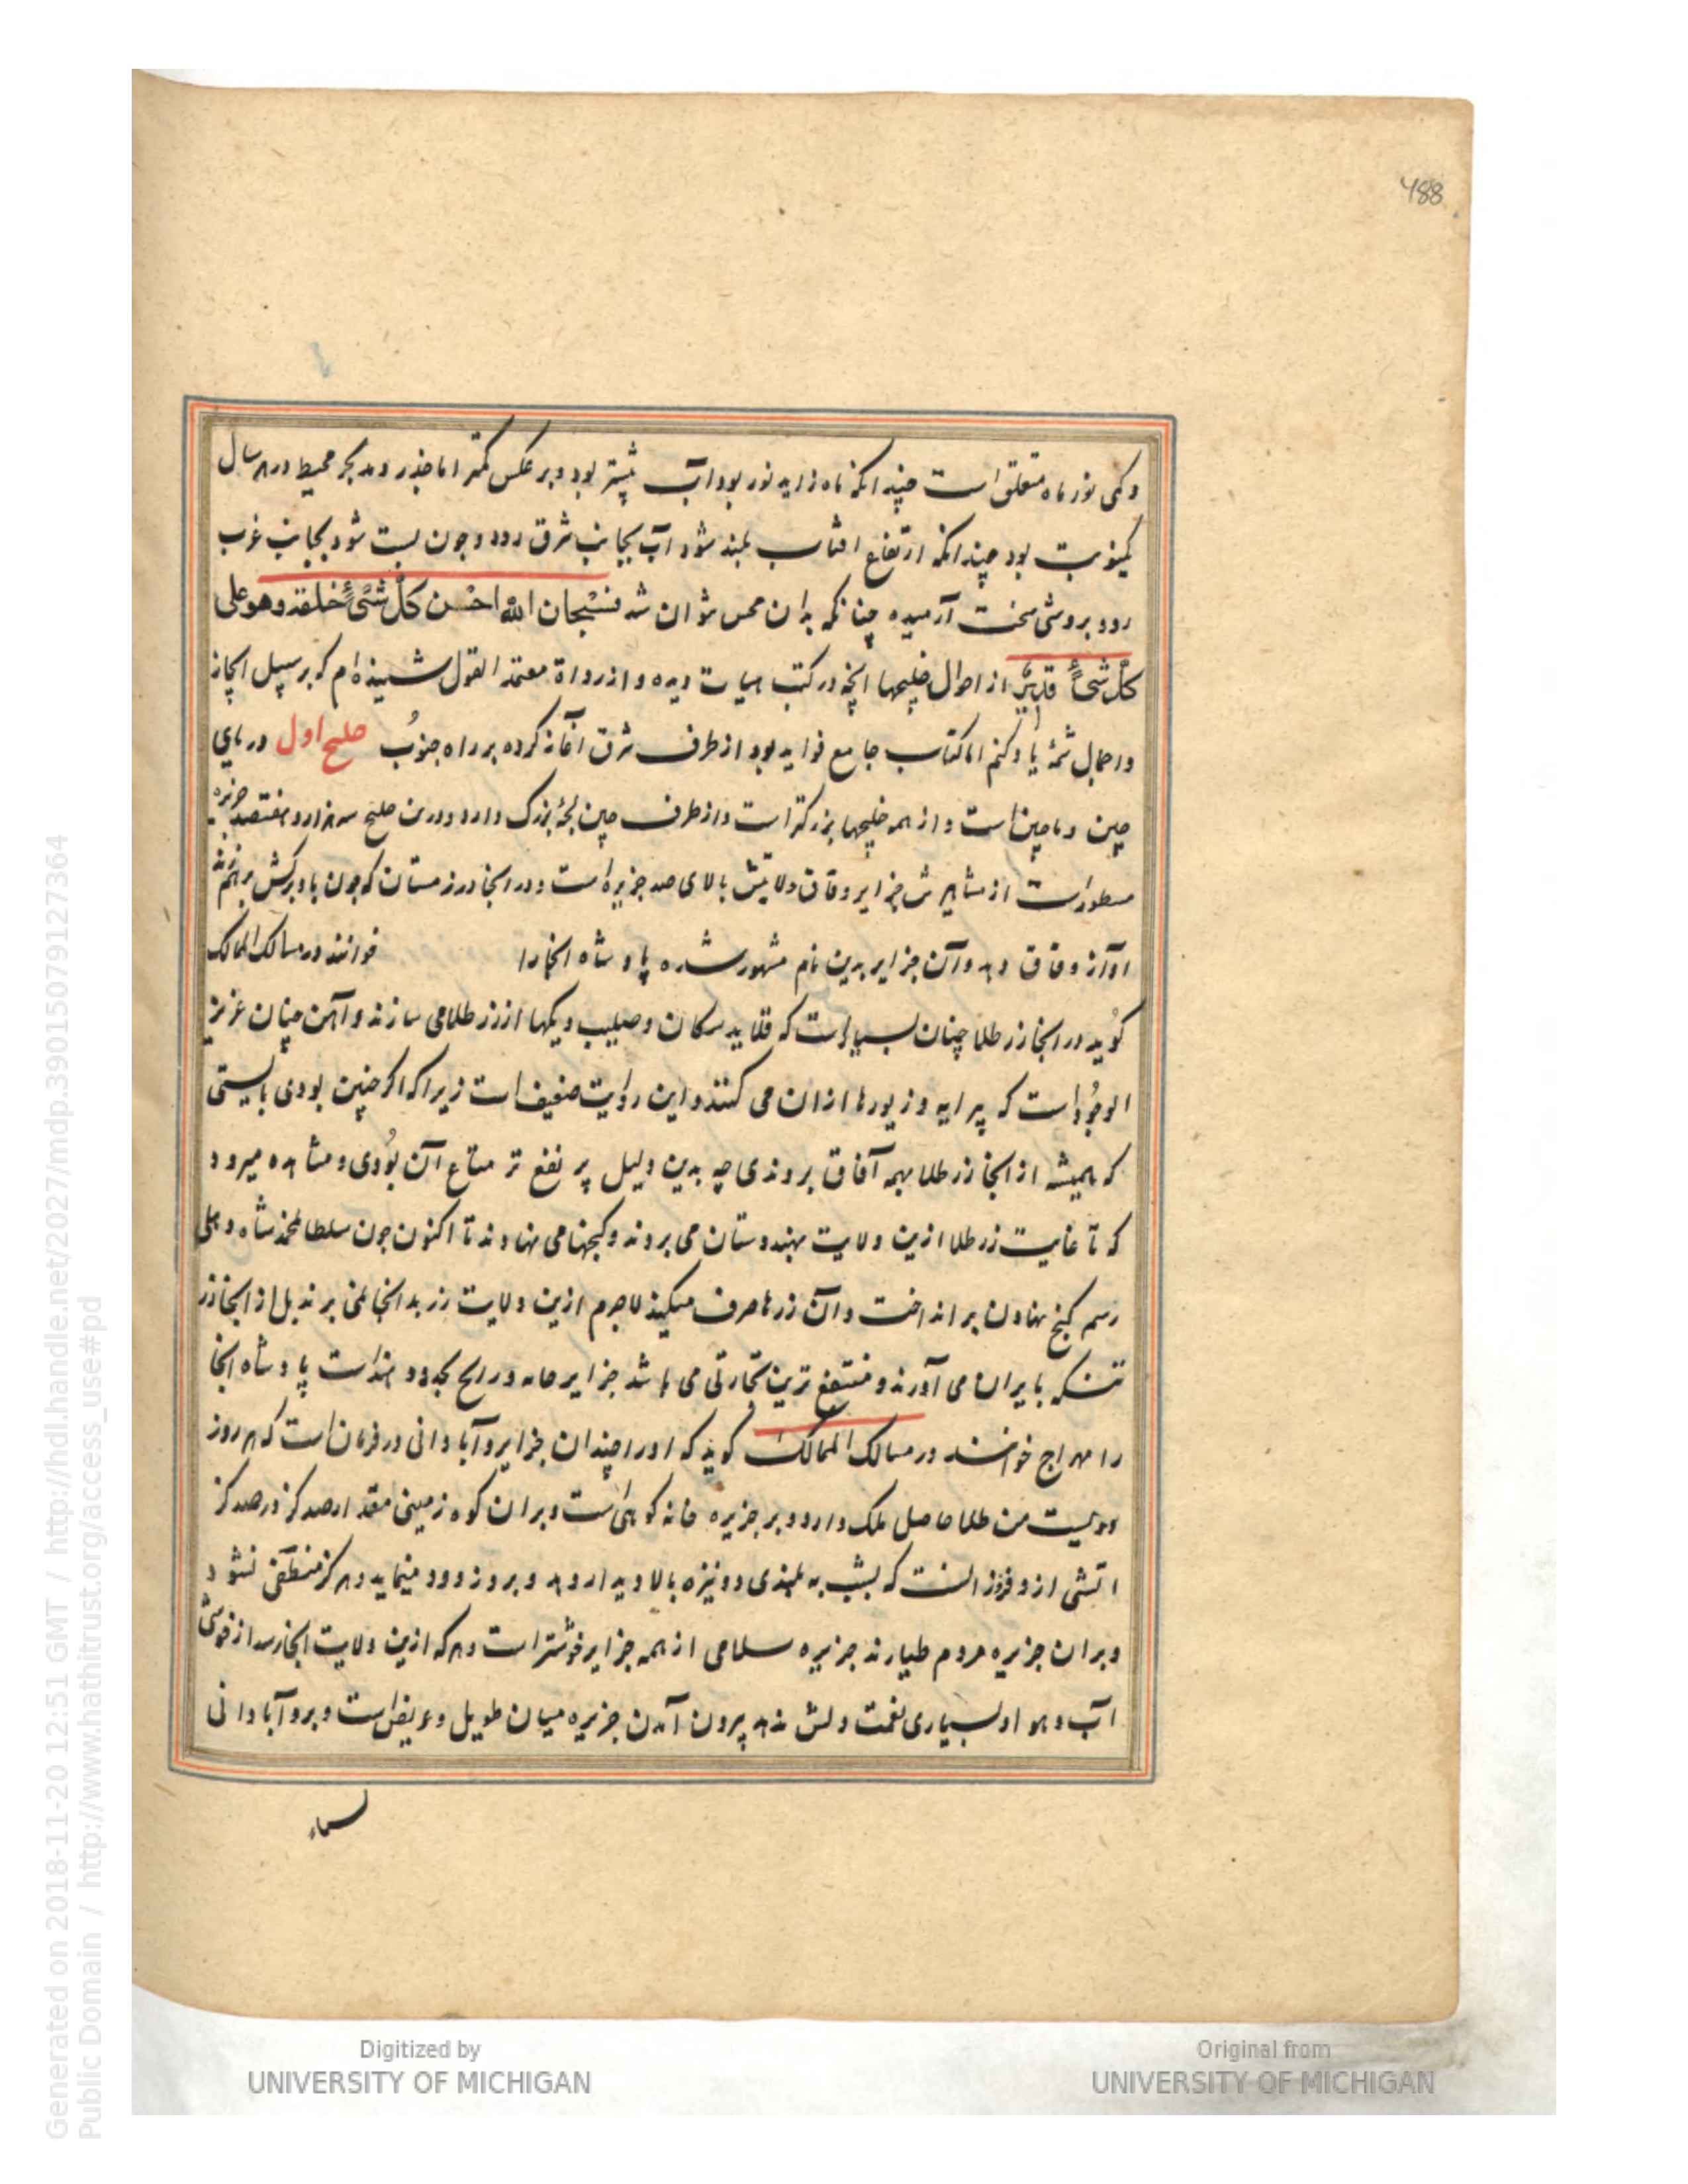 488
وکمی نور ماه متعلق است چندانکه ماه زاید نور بود آب بیشتر بود و بر عکس کمتر اما جذر و مد بحر محیط در هر سال
یکنوبت بود چندانکه ارتفاع افتاب بلند شود آب بجانب شرق رود و چون پست شود بجانب غرب
رود بروشی سخت آرمیده چنانکه بدان محس نتوان شد فسبحان الله احسن کل شیء خلقه وهو علی
کل شیء قدیر از احوال خلیجها آنچه در کتب هیات دیده و از رواة معتمد القول شنیده‌ام که بر سپیل ایجاز
و اجمال شمهٔ یاد کنم اما کتاب جامع فواید بود از طرف شرق آغاز کرده بر راه جنوب خلیج اول دریای
چین و ماچین است و از همه خلیجها بزرکتر است و از طرف چین لجهٔ بزرک دارد و درین خلیج سه هزار و هفتصد جزیره
مسطور است از مشاهیرش جزایر وقاق ولایتش بالای صد جزیره است و در آنجا درزمستان که چون باد برکش بر هم زند
آواز وقاق دهد و آن جزایر بدین نام مشهور شده پادشاه انجا را خوانند در مسالک الممالک
کوید در انجا زر طلا چنان بسیار است که قلاید سکان و صلیب و یکها از زر طلا می سازند و آهن چنان عزیز
الوجود است که پیرایه و زیورها از ان می کنند و این روایت ضعیف است زیرا که اکر چنین بودی بایستی
که همیشه از انجا زر طلا بهمه آفاق بردندی چه بدین دلیل پر نفع تر متاع آن بودی و مشاهده میرود
که تا غایت زر طلا ازین ولایت بهندوستان می بردند و کنجها می نهادند تا اکنون چون سلطان محمد شاه دهلی
رسم کنج نهادن بر انداخت و آن زرها صرف میکند لاجرم ازین ولایت زر بدانجا نمی برند بل از انجا زر
تنکه بایران می آورند و منتفع ترین تجارتی می باشد جزایر جابه و رانج بحدود هند است پادشاه انجا
را مهراج خوانند در مسالک الممالک کوید که او را چندان جزایر و آبادانی در فرمان است که هر روز
دویست من طلا حاصل ملک دارد و بر جزیره جابه کوهی است و بر ان کوه زمینی مقدار صد کز در صد کز
اتشی ازو فروزانست که بشب به بلندی دو نیزه بالا دیدار دهد و بروز دود مینماید و هرکز منطفی نشود
و بر ان جزیره مردم طیارند جزیره سلامی از همه جزایر خوشتر است و هر که ازین ولایت انجا رسد از خوشی
آب و هوا و بسیاری نعمت دلش ندهد بیرون آمدن جزیره میان طویل و عریض است و برو آبادانی
Generated on 2018-11-20 12:51 GMT / http://hdl.handle.net/2027/mdp.39015079127364
Public Domain / http://www.hathitrust.org/access_use#pd
Digitized by
UNIVERSITY OF MICHIGAN
Original from
UNIVERSITY OF MICHIGAN